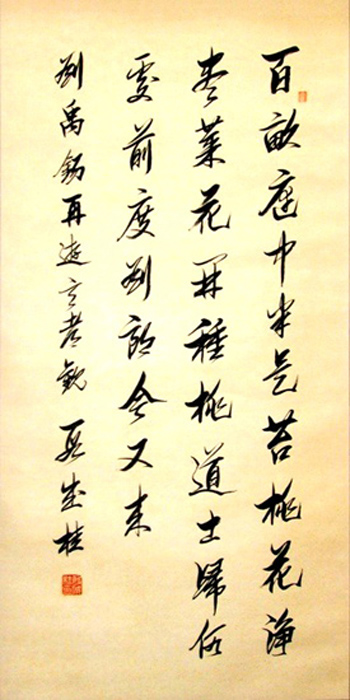 百畝庭中半是苔桃花淨
盡菜花開種桃道士歸何
處前度劉郎今又來
劉禹錫再遊玄都觀 段成桂